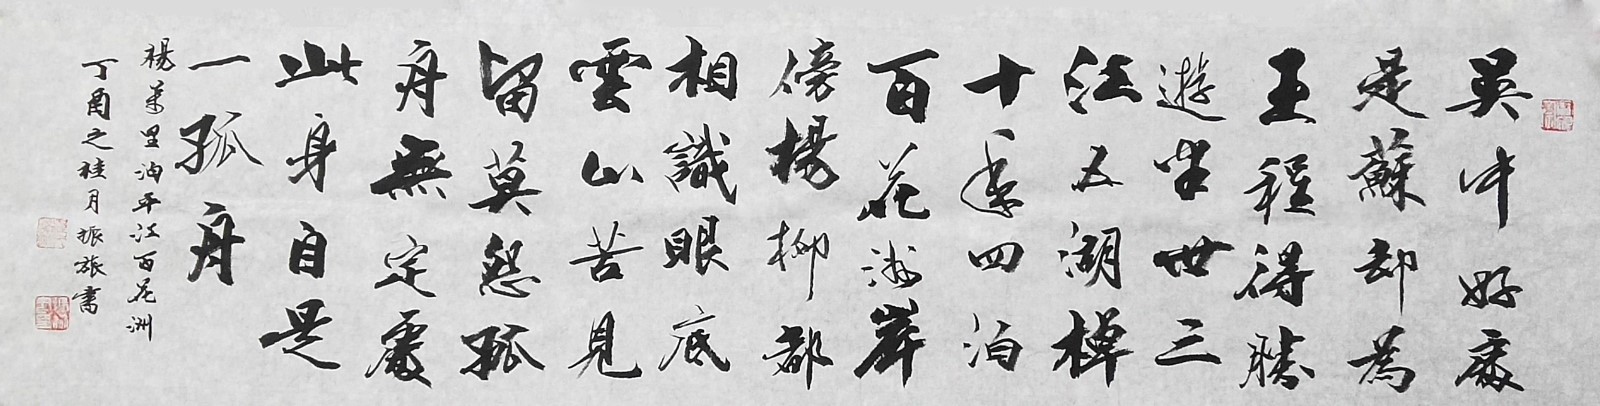 吳中好處
是蘇却為
王程得勝
遊半世三
江五湖棹
十年四泊
百花洲岸
傍楊柳都
相識眼底
雲山苦見
留莫怨孤
舟無定處
此身自是
一孤舟
楊萬里泊平江百花洲
丁酉之桂月振旅書